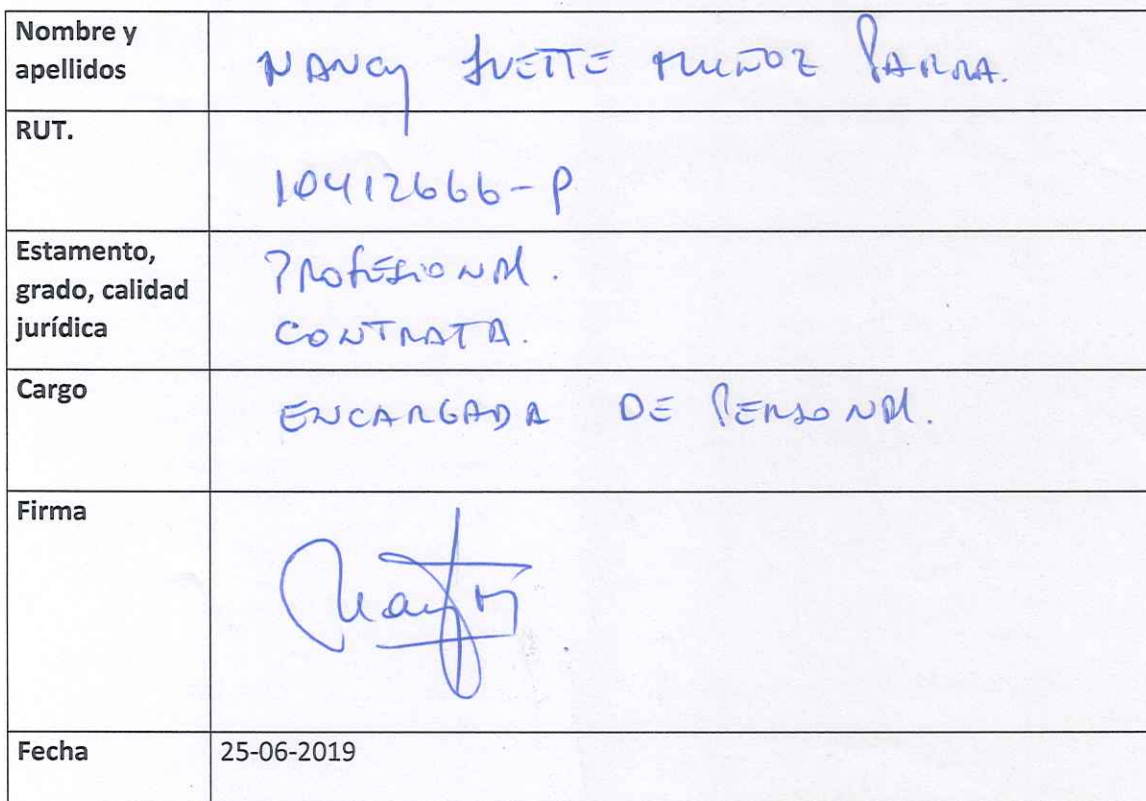 Nombre y
apellidos
NANCY IVETTE MUÑOZ PARRA.
RUT.
10412666-P
Estamento,
grado, calidad
jurídica
PROFESIONAL.
CONTRATA.
Cargo
ENCARGADA DE PERSONAL.
Firma
Fecha
25-06-2019